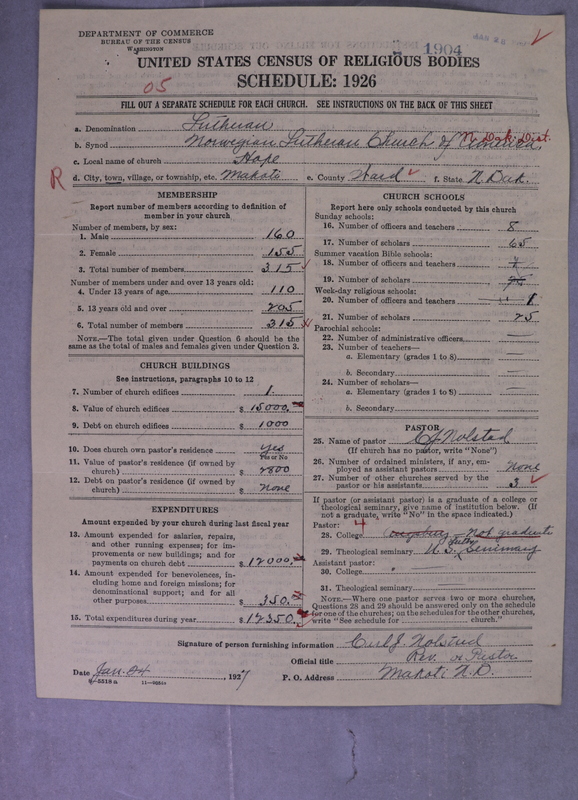 DEPARTMENT OF COMMERCE
BUREAU OF THE CENSUS
WASHINGTON
JAN 28
1904
UNITED STATES CENSUS OF RELIGIOUS BODIES
SCHEDULE: 1926
05
FILL OUT A SEPARATE SCHEDULE FOR EACH CHURCH. SEE INSTRUCTIONS ON THE BACK OF THIS SHEET
a. Denomination Lutheran
b. Synod Norwegian Lutheran Church of America N. Dak. Dist.
c. Local name of church Hope
R d. City, town, village, or township, etc. Makoti e. County Ward f. State N. Dak.
MEMBERSHIP
Report number of members according to definition of
member in your church
Number of members, by sex:
1. Male 160
2. Female 155
3. Total number of members 315
Number of members under and over 13 years old:
4. Under 13 years of age 110
5. 13 years old and over 205
6. Total number of members 315
NOTE.—The total given under Question 6 should be the
same as the total of males and females given under Question 3.
CHURCH BUILDINGS
See instructions, paragraphs 10 to 12
7. Number of church edifices 1.
8. Value of church edifices $ 15000.
9. Debt on church edifices $ 1000
10. Does church own pastor's residence? yes
Yes or No
11. Value of pastor's residence (if owned by
church) $ 2800
12. Debt on pastor's residence (if owned by
church) $ none
EXPENDITURES
Amount expended by your church during last fiscal year
13. Amount expended for salaries, repairs,
and other running expenses; for im-
provements or new buildings; and for
payments on church debt $ 12000.
14. Amount expended for benevolences, in-
cluding home and foreign missions; for
denominational support; and for all
other purposes $ 350.
15. Total expenditures during year $ 12350.
CHURCH SCHOOLS
Report here only schools conducted by this church
Sunday schools:
16. Number of officers and teachers 8
17. Number of scholars 65
Summer vacation Bible schools:
18. Number of officers and teachers
19. Number of scholars
Week-day religious schools:
20. Number of officers and teachers 1
21. Number of scholars 25
Parochial schools:
22. Number of administrative officers —
23. Number of teachers—
a. Elementary (grades 1 to 8) —
b. Secondary —
24. Number of scholars—
a. Elementary (grades 1 to 8) —
b. Secondary —
PASTOR
25. Name of pastor C J Nolstad
(If church has no pastor, write "None")
26. Number of ordained ministers, if any, em-
ployed as assistant pastors None
27. Number of other churches served by the
pastor or his assistants 3
If pastor (or assistant pastor) is a graduate of a college or
theological seminary, give name of institution below. (If
not a graduate, write "No" in the space indicated.)
Pastor: 4
28. College Augsburg Not graduate
29. Theological seminary U. S. Luther Seminary
Assistant pastor:
30. College
31. Theological seminary
NOTE.—Where one pastor serves two or more churches,
Questions 28 and 29 should be answered only on the schedule
for one of the churches; on the schedules for the other churches,
write "See schedule for church."
Signature of person furnishing information Carl J. Nolstad
Official title Rev. or Pastor
Date Jan. 24, 1927 P. O. Address Makoti N. D.
8-5518a 11—9664a